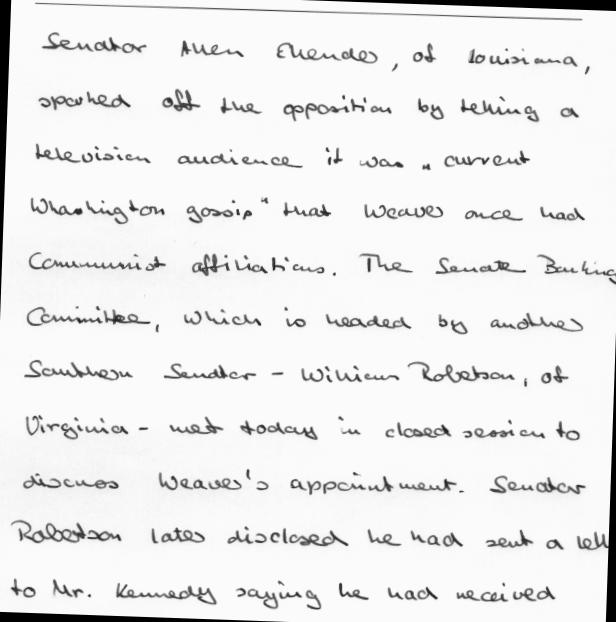 Senator Allen Ellender, of Louisiana,
sparked off the opposition by telling a
television audience it was „current
Whashington gossip" that Weaver once had
Communist affiliations. The Senate Banking
Committee, which is headed by another
Southern Senator - William Robertson, of
Virginia - met today in closed session to
discuss Weaver's appointment. Senator
Robertson later disclosed he had sent a lett
to Mr. Kennedy saying he had received